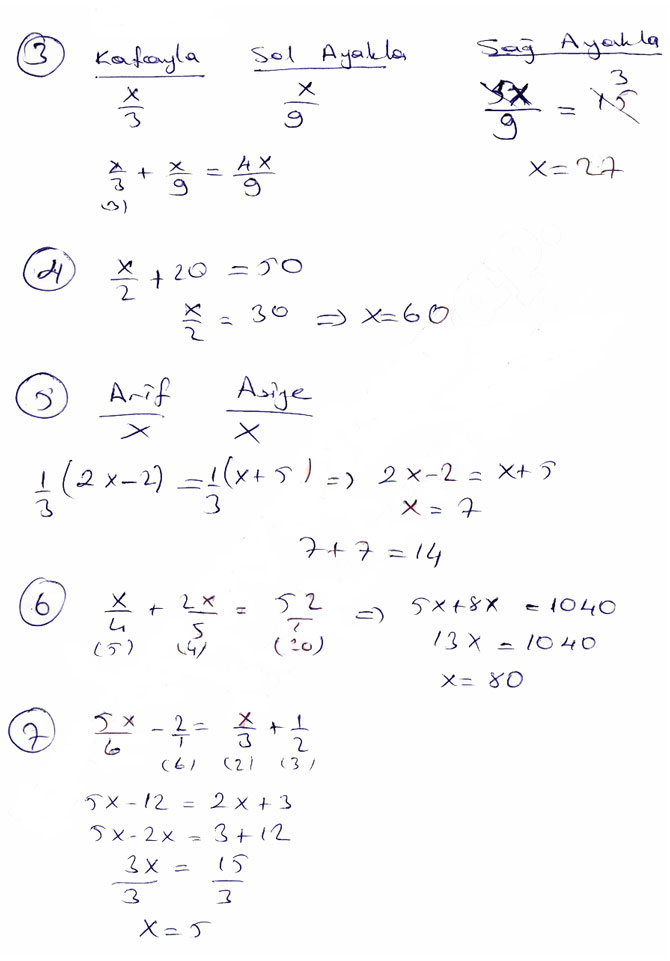 3 Kafayla Sol Ayakla Sağ Ayakla
x/3 x/9 5x/9 = 15 3
x/3 + x/9 = 4x/9 x=27
(3)
4 x/2 + 20 = 50
x/2 = 30 ⇒ x=60
5 Arif Asiye
x x
1/3 (2x-2) = 1/3 (x+5) ⇒ 2x-2 = x+5
x = 7
7+7=14
6 x/4 + 2x/5 = 52/1 ⇒ 5x+8x = 1040
(5) (4) (20) 13x = 1040
x= 80
7 5x/6 - 2/1 = x/3 + 1/2
(6) (2) (3)
5x-12 = 2x+3
5x-2x = 3+12
3x/3 = 15/3
x=5